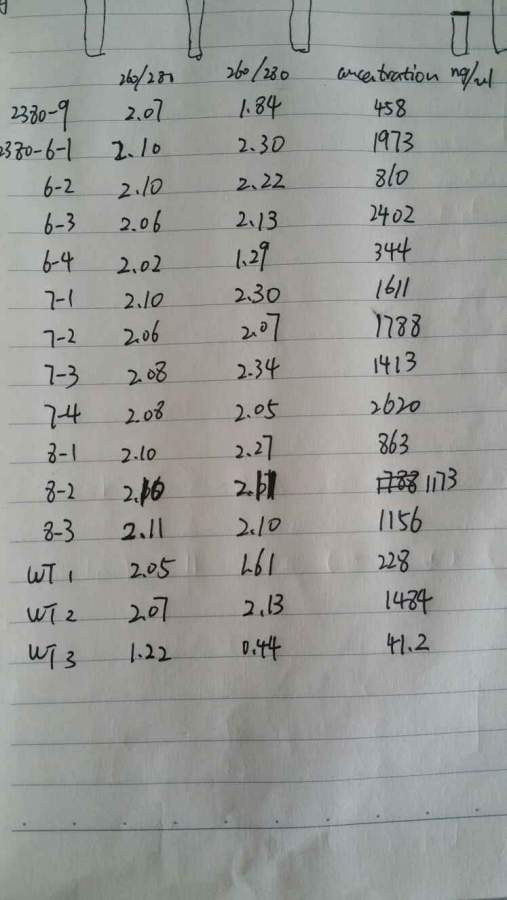 260/280 260/230 concentration ng/ul
2380-9 2.07 1.84 458
2380-6-1 2.10 2.30 1973
6-2 2.10 2.22 810
6-3 2.06 2.13 2402
6-4 2.02 1.29 344
7-1 2.10 2.30 1611
7-2 2.06 2.07 1788
7-3 2.08 2.34 1413
7-4 2.08 2.05 2620
8-1 2.10 2.27 863
8-2 1173
8-3 2.11 2.10 1156
WT 1 2.05 1.61 228
WT 2 2.07 2.13 1484
WT 3 1.22 0.44 41.2